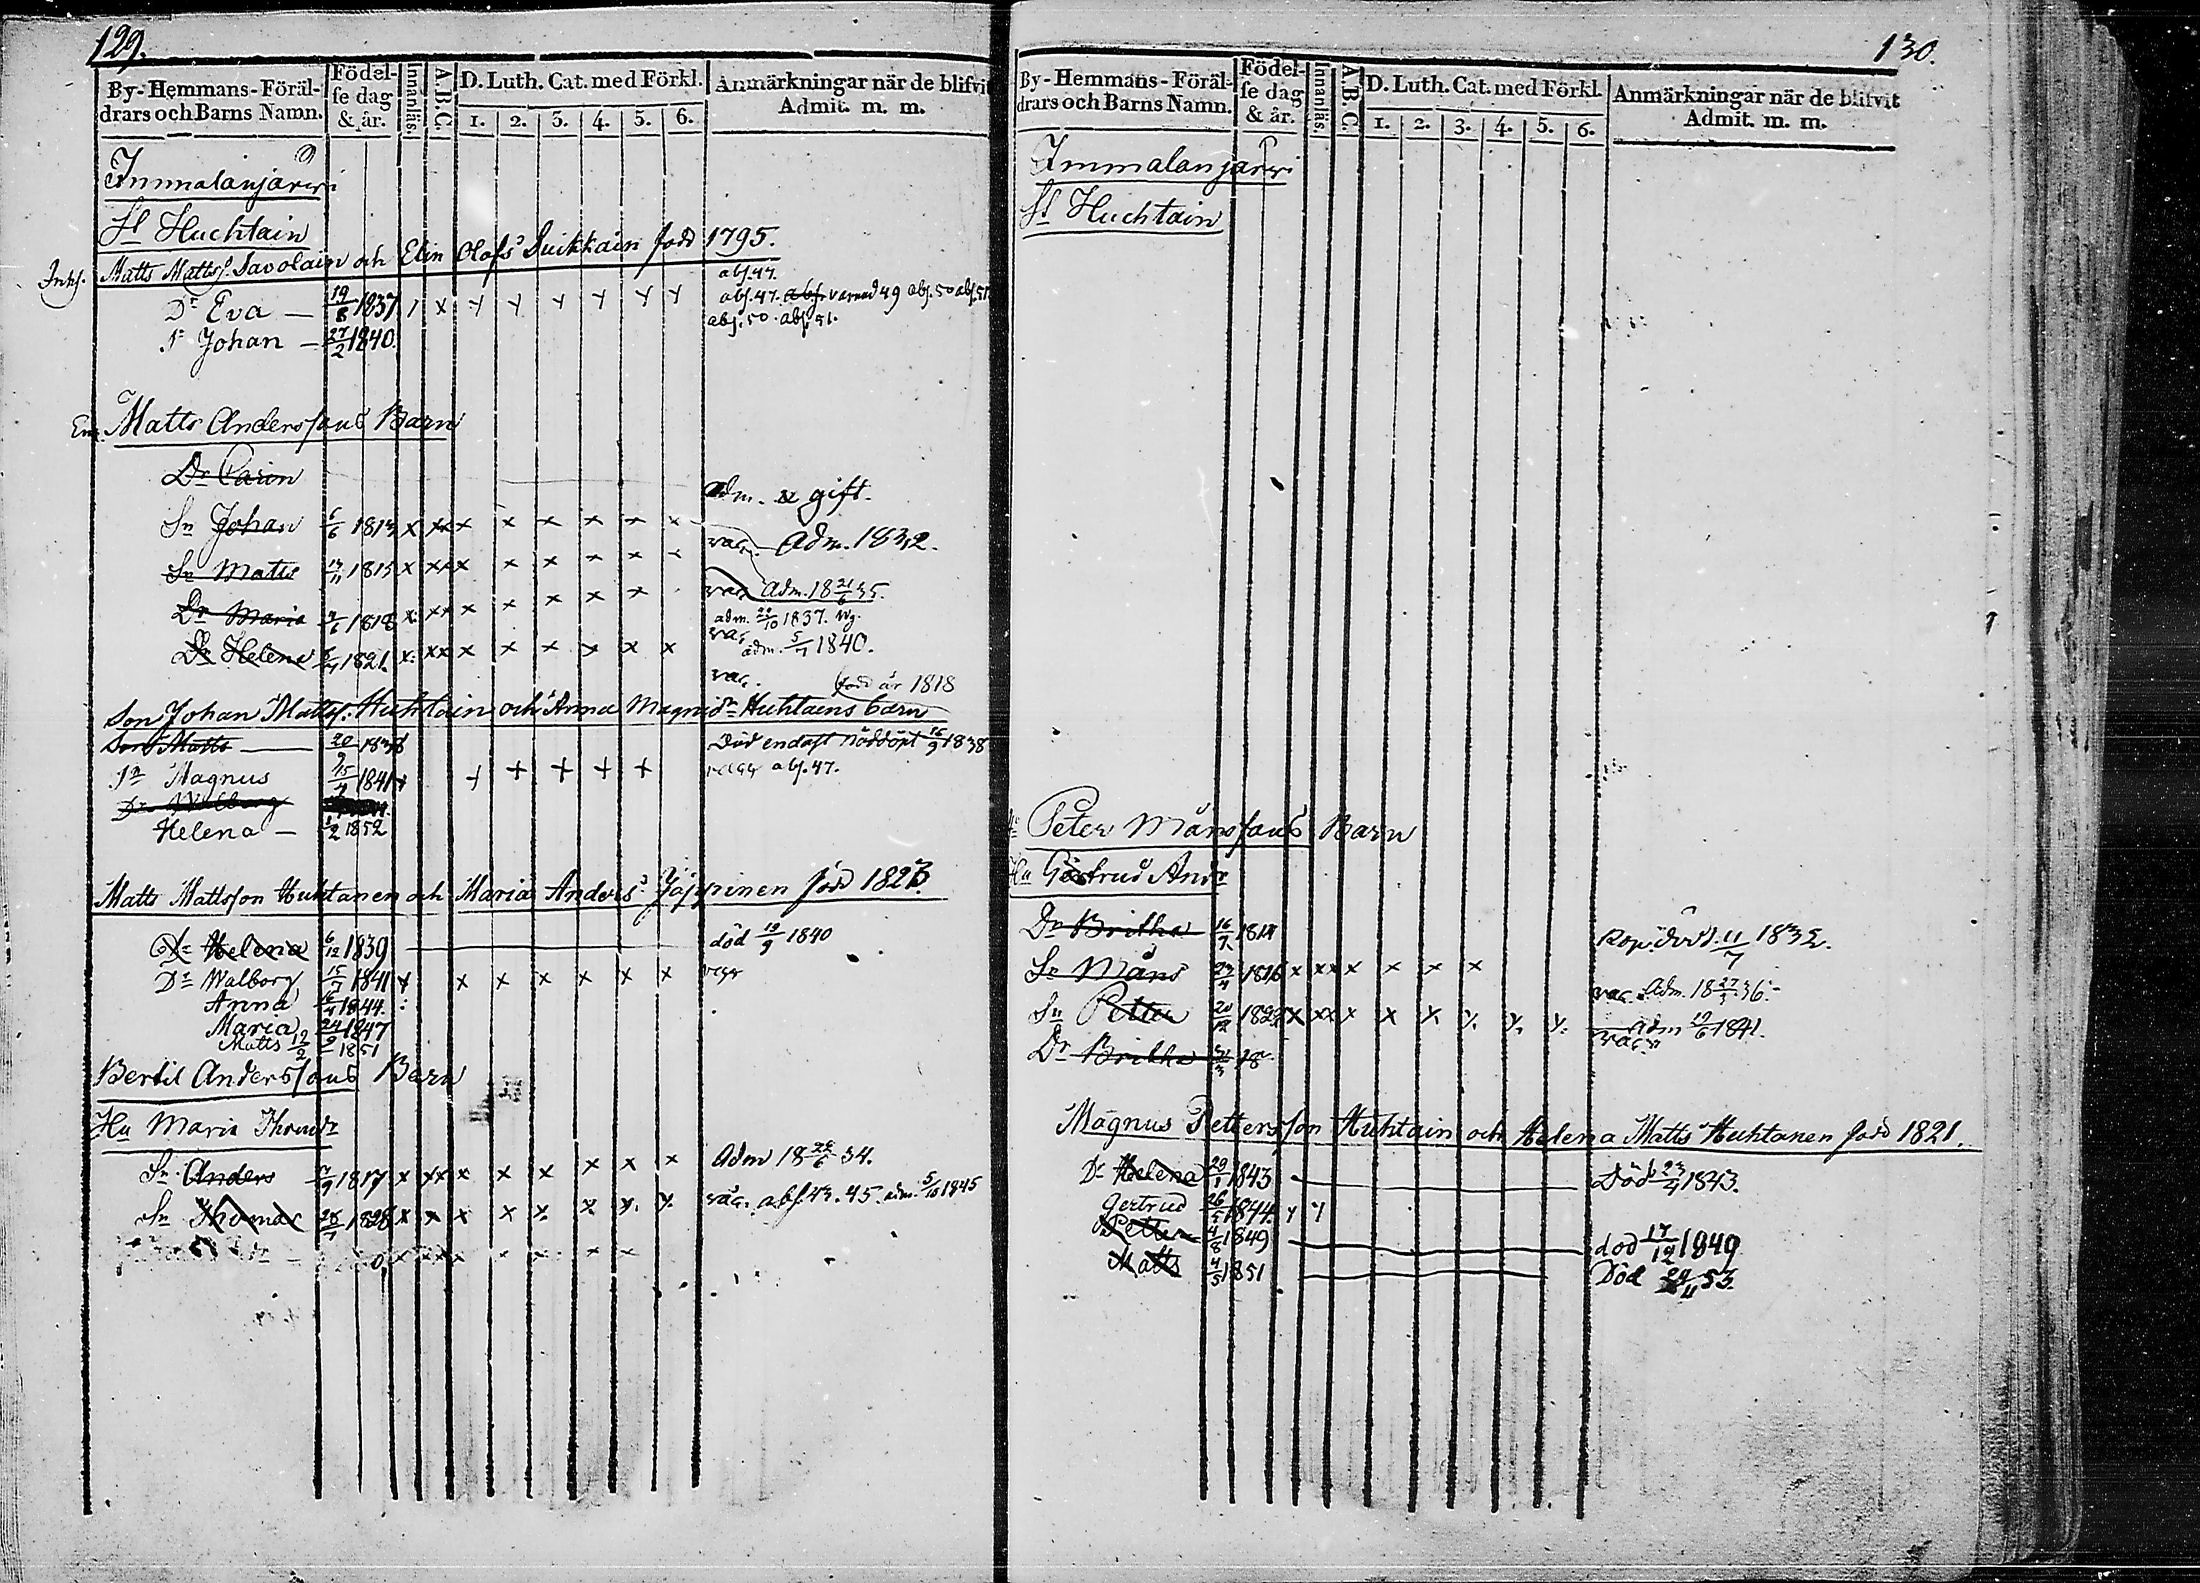 129.
By-Hemmans-Föräl-
drars och Barns Namn.
Födel-
se dag
& år.
Innanläs.
A.B.C.
D. Luth. Cat. med Förkl.
1. 2. 3. 4. 5. 6.
Anmärkningar när de blifvit
Admit. m. m.
Immalanjärwi
Huchtain
Inhs. Matts Mattss. Savolain och Elin Olofs Suikkain född 1795.
abs. 47.
Dr Eva — 19/8 1837 / x y y y y y y abs. 47. abs. varnad 49 abs. 50 abs. 51.
Sn Johan — 27/2 1840. abs. 50. abs. 51.
Matts Anderssons Barn
Dr Carin adm. gift.
Sn Johan 6/6 1813 x xx x x x x x x vac. Adm. 1832.
Sn Matts 1815 x xx x x x x x x vac. adm. 18 21/6 35.
Dr Maria 1818 x xx x x x x x adm. 1837.
vac.
Dr Helena 1821. x xx x x x x x x adm. 5/7 1840.
vac. född år 1818
Son Johan Matts. Huhtain och Anna Magnidr Huhtains barn
Son Matts — 20/9 1838 Död endast nöddöpt 1838
Sn Magnus 1841 x x x x x abs. 47.
Dr Walborg
Helena — 1/2 1852
Matts Mattsson Huhtanen och Maria Anders Jäppinen född 1823.
Dr Helena 6/12 1839 död 19/9 1840
Dr Walborg 15/7 1841 x x x x x x
Anna 1844.
Maria 24/9 1847
Matts 12/2 1851
Bertil Anderssons Barn
Hu Maria Thomdr
Sn Anders 1817 x xx x x x x x x Adm 18 26/6 34.
Sn Thomas 1828 x x x x x x x x vac. abs. 43. 45. adm. 5/10 1845
130.
By-Hemmans-Föräl-
drars och Barns Namn.
Födel-
se dag
& år.
Innanläs.
A.B.C.
D. Luth. Cat. med Förkl.
1. 2. 3. 4. 5. 6.
Anmärkningar när de blifvit
Admit. m. m.
Immalanjärwi
Huchtain
Peter Månssons Barn
Hu Gertrud Andr
Dr Britha 16/7 Kop. 11/7 1832.
Sn Måns 1816 x xx x x x x vac. Adm. 18 36.
Sn Petter 20/12 1822 x xx x x x x x x adm 19/6 1841.
vac.
Dr Britha 18
Magnus Pettersson Huhtain och Helena Matts Huhtanen född 1821.
Dr Helena 29/1 1843 Död 23/4 1843.
Gertrud 26/5 1844. y y
Petter 4/8 1849 död 17/12 1849
Matts 4/5 1851 Död 53.